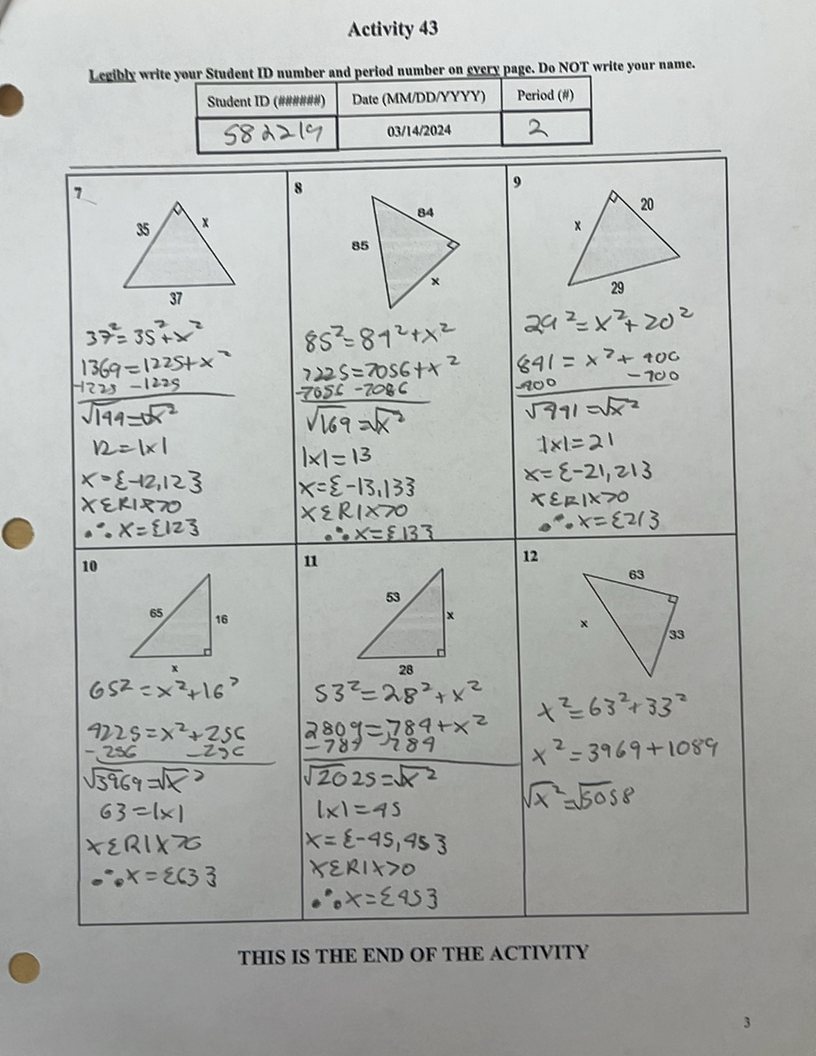 Activity 43
Legibly write your Student ID number and period number on every page. Do NOT write your name.
Student ID (######) Date (MM/DD/YYYY) Period (#)
582219 03/14/2024 2
7
35 x
37
37²=35²+x²
1369=1225+x²
-1225 -1225
√144=√x²
12=|x|
x={-12,12}
xεR|x>0
∴ x={12}
8
84
85
x
85²=84²+x²
7225=7056+x²
-7056 -7056
√169=√x²
|x|=13
x={-13,13}
xεR|x>0
∴ x={13}
9
20
x
29
29²=x²+20²
841=x²+400
-400 -400
√441=√x²
|x|=21
x={-21,21}
xεR|x>0
∴ x={21}
10
65 16
x
65²=x²+16²
4225=x²+256
-256 -256
√3969=√x²
63=|x|
xεR|x>0
∴ x={63}
11
53
x
28
53²=28²+x²
2809=784+x²
-784 -784
√2025=√x²
|x|=45
x={-45,45}
xεR|x>0
∴ x={45}
12
63
x
33
x²=63²+33²
x²=3969+1089
√x²=√5058
THIS IS THE END OF THE ACTIVITY
3